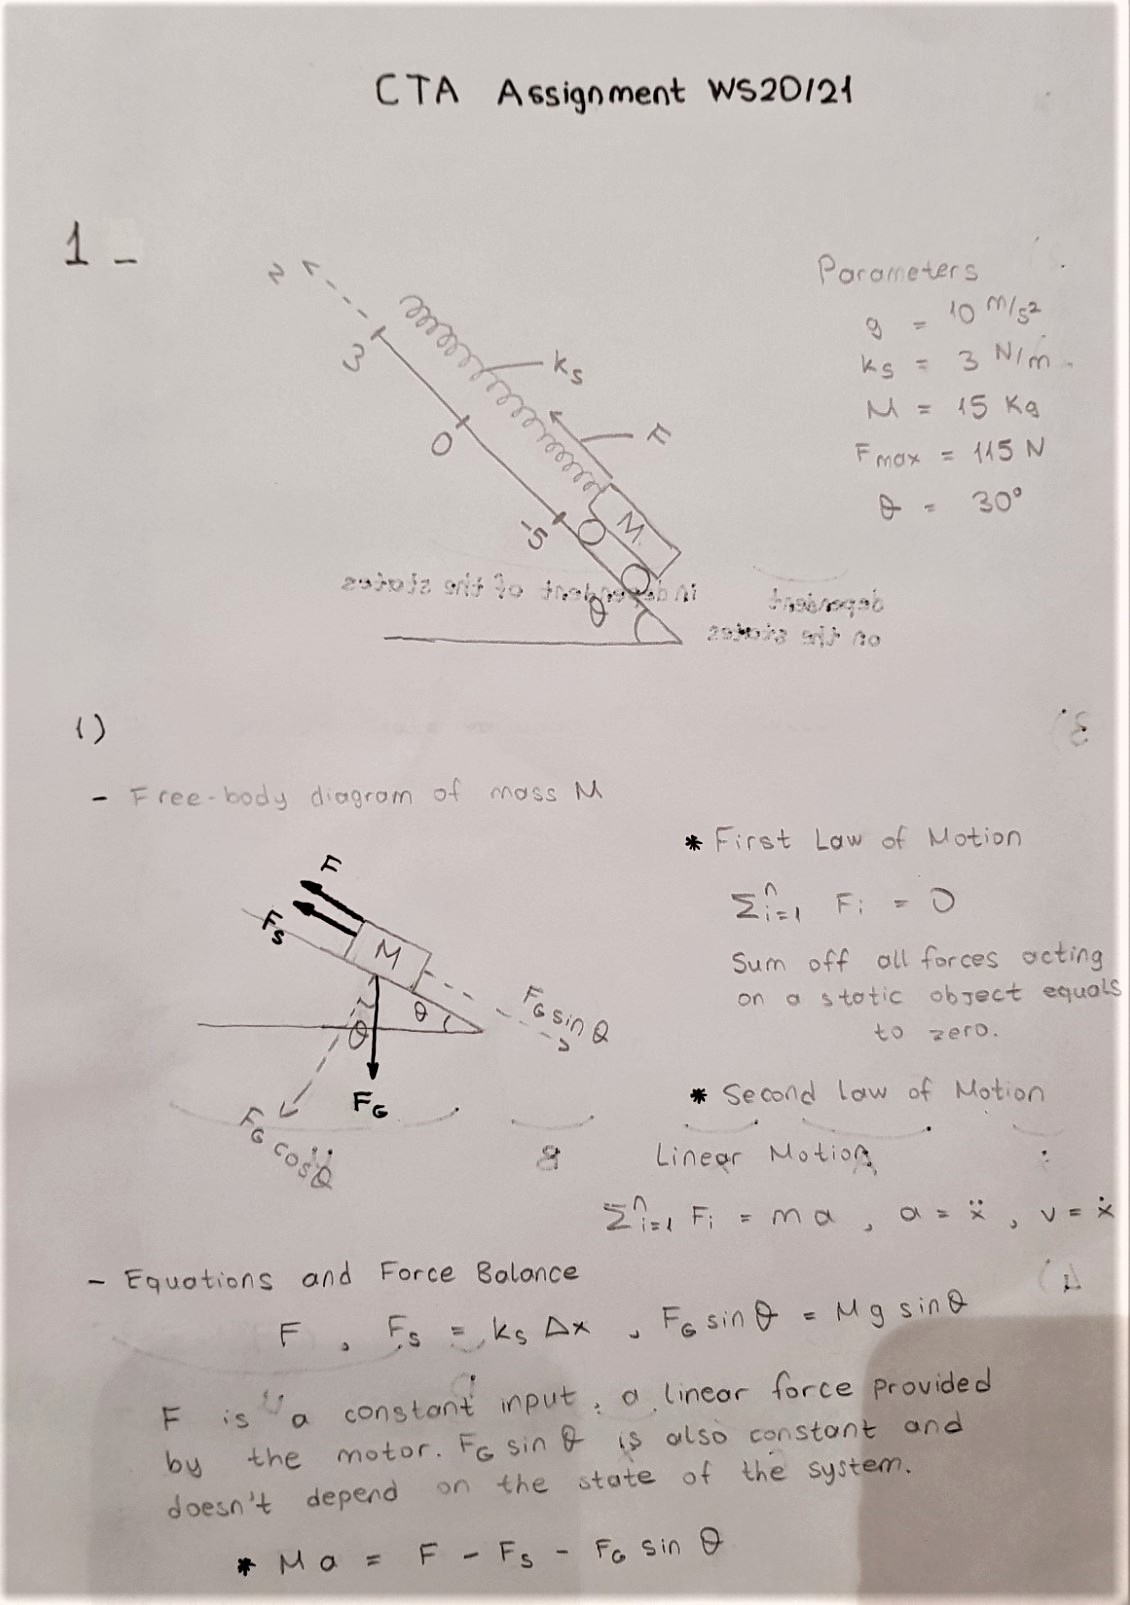 CTA Assignment WS20/21
1 -
z
3
ks
0
F
-5
M
θ
Parameters
g = 10 m/s²
ks = 3 N/m
M = 15 Kg
Fmax = 115 N
θ = 30°
1)
- Free-body diagram of mass M
F
Fs
M
θ
θ
FG sin θ
FG
FG cos θ
* First Law of Motion
Σⁿi=1 Fi = 0
Sum off all forces acting
on a static object equals
to zero.
* Second law of Motion
Linear Motion
Σⁿi=1 Fi = m a , a = ẍ , v = ẋ
- Equations and Force Balance
F , Fs = ks Δx , FG sin θ = Mg sin θ
F is a constant input, a linear force provided
by the motor. FG sin θ is also constant and
doesn't depend on the state of the system.
* M a = F - Fs - FG sin θ